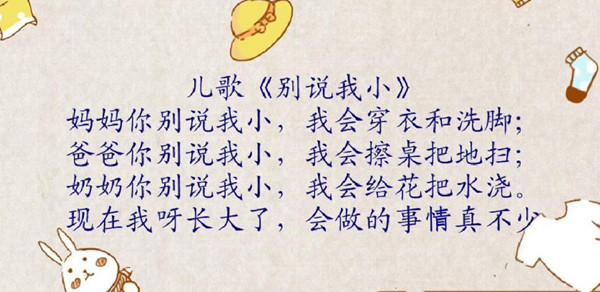 儿歌《别说我小》
妈妈你别说我小，我会穿衣和洗脚；
爸爸你别说我小，我会擦桌把地扫；
奶奶你别说我小，我会给花把水浇。
现在我呀长大了，会做的事情真不少